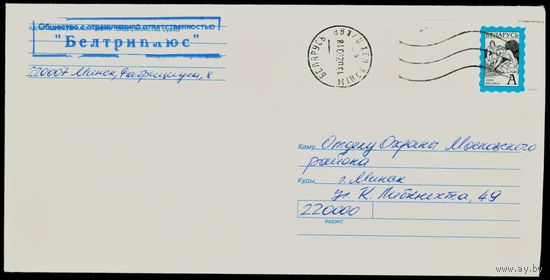 Общество с ограниченной ответственностью
"Белтриплюс"
220007 г. Минск, Фабрициуса, 8
БЕЛАРУСЬ
МІНСК
БЕЛАРУСЬ
А
Каму Отделу Охраны Московского
района
Куды г. Минск
ул. К. Либкнехта, 49
220000
Індэкс
www.ay.by